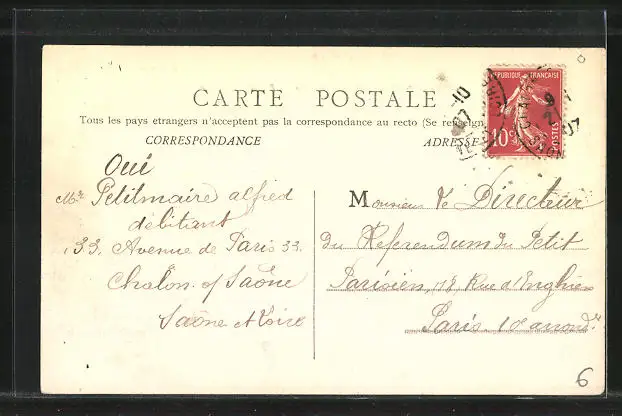 CARTE POSTALE
Tous les pays étrangers n'acceptent pas la correspondance au recto (Se renseign
CORRESPONDANCE
ADRESSE
REPUBLIQUE FRANÇAISE
10c
POSTES
10
9
07
Oui
Mr Petitmaire alfred
débitant
33. Avenue de Paris 33.
Chalon s/ Saône
Saône et Loire
Monsieur le Directeur
du Referendum du Petit
Parisien, 18 Rue d'Enghien
Paris 10e arrondr
6